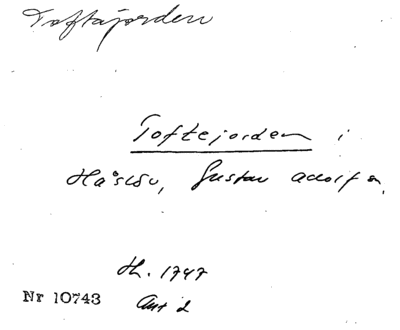 Toftajorden
Toftejorden i
Håslöv, Gustav Adolf sn.
Sh. 1747
Nr 10743
Akt 2